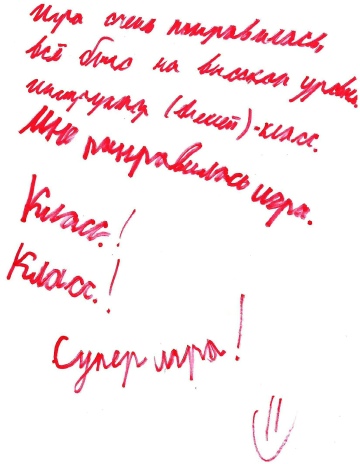 игра очень понравилась,
всё было на высоком уровне.
инструктаж ()-класс.
Мне понравилась игра.
Класс.!
Класс.!
Супер игра!